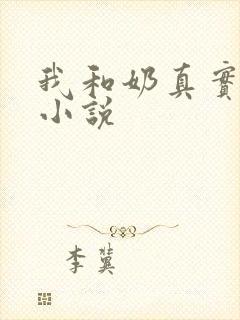 我和奶真實
小說
李冀